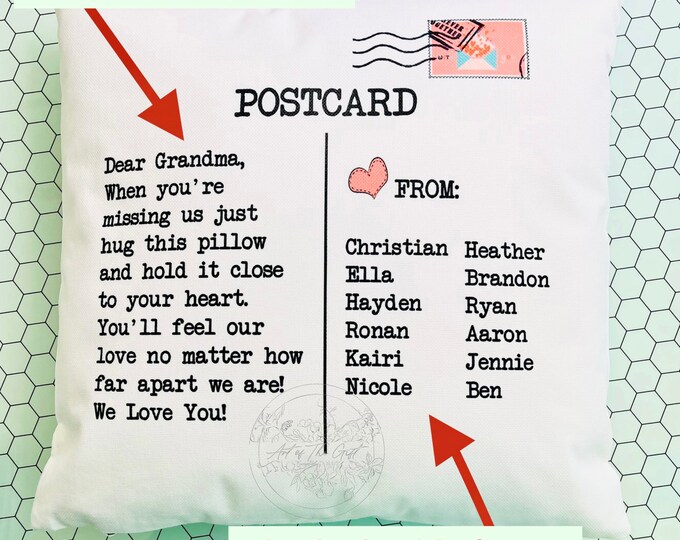 POSTCARD
Dear Grandma,
When you're
missing us just
hug this pillow
and hold it close
to your heart.
You'll feel our
love no matter how
far apart we are!
We Love You!
FROM:
Christian Heather
Ella Brandon
Hayden Ryan
Ronan Aaron
Kairi Jennie
Nicole Ben
Art of The Gift